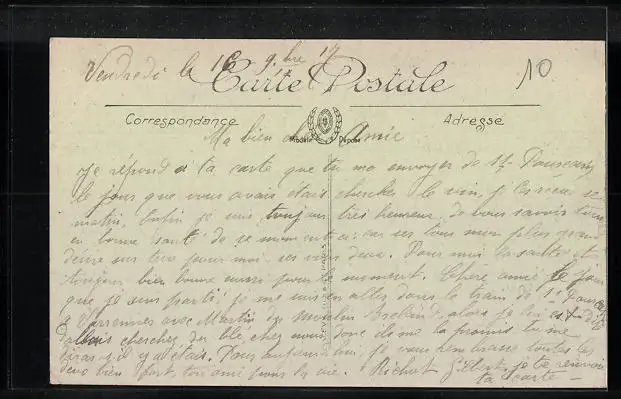 Vendredi le 16 9.bre 17
10
Carte Postale
Correspondance
Adresse
Modèle Déposé
Ma bien Amie
Je répond a ta carte que tu ma envoyer de St.
le jour que vous avais étais chercher le vin, je
matin, Enfin je suis toujour tres heureux de vous savoir
en bonne santé de se moment ci car ses tous mon plus grand
désire sur tère pour moi ses vous deux. Pour moi la santer et
toujour bien bonne aussi pour le moment. Chere amie le jour
que je suis parti, je me suis en aller dans le train de
a Varennes avec Martin du Moulin alors je lui
d'allais chercher du blé chez nous donc ils me la promis
si il y a étais. Pour aujourd'hui, je vous embrasse toutes les
deux bien fort, ton ami pour la vie. Richet Gilbert, je te renvoir
ta carte